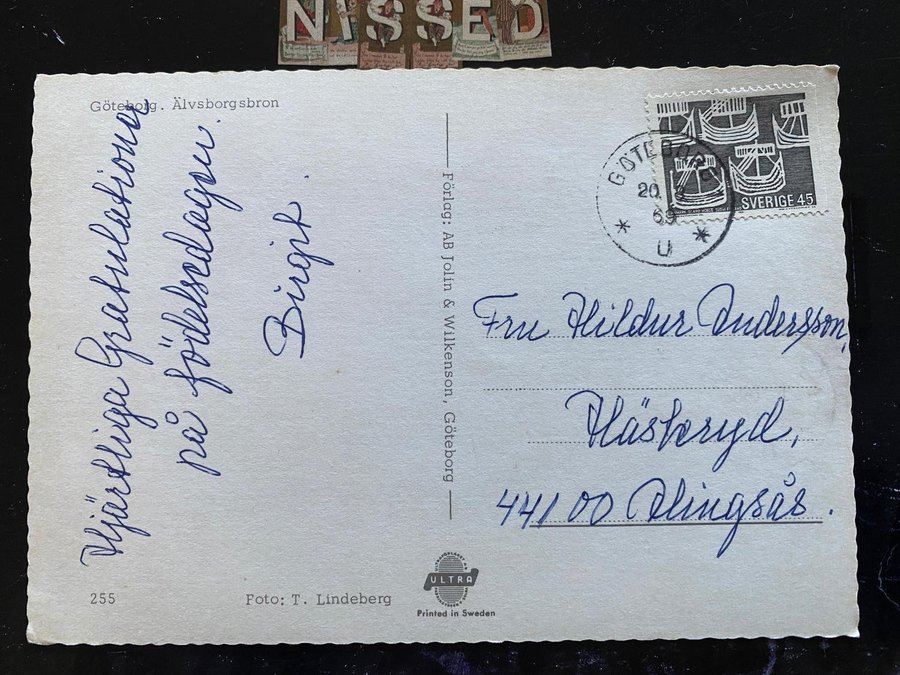 NISSED
Göteborg. Älvsborgsbron
Hjärtliga Gratulationer
på födelsedagen.
Birgit.
Förlag: AB Jolin & Wilkenson, Göteborg
GÖTEBORG
20
69
U
SVERIGE 45
Fru Hildur Andersson,
Häskeryd,
44100 Alingsås.
255
Foto: T. Lindeberg
ULTRA
Printed in Sweden